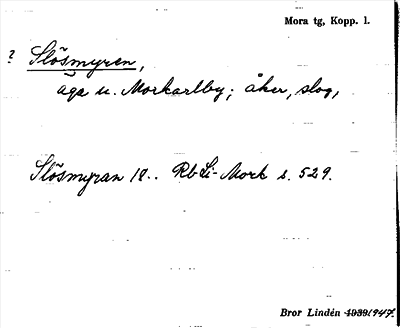 Mora tg, Kopp. l.
? Slösmyren,
äga u. Morkarlby; åker, slog,
Slösmyran 18.. Rb Li- Mork s. 529.
Bror Lindén 1939 1947.